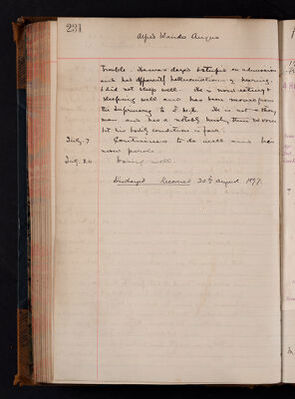 231
Alfred Angus
trouble. He was dazed & stupid on admission
and had apparently hallucinations of hearing
& did not sleep well. He is now eating &
sleeping well and has been moved from
the Infirmary to He is not a
man and has a
but his bodily condition is fair.
July. 7 Continues to do well and has
now parole.
July. 26 Doing well
Discharged Recovered 20th August 1897.